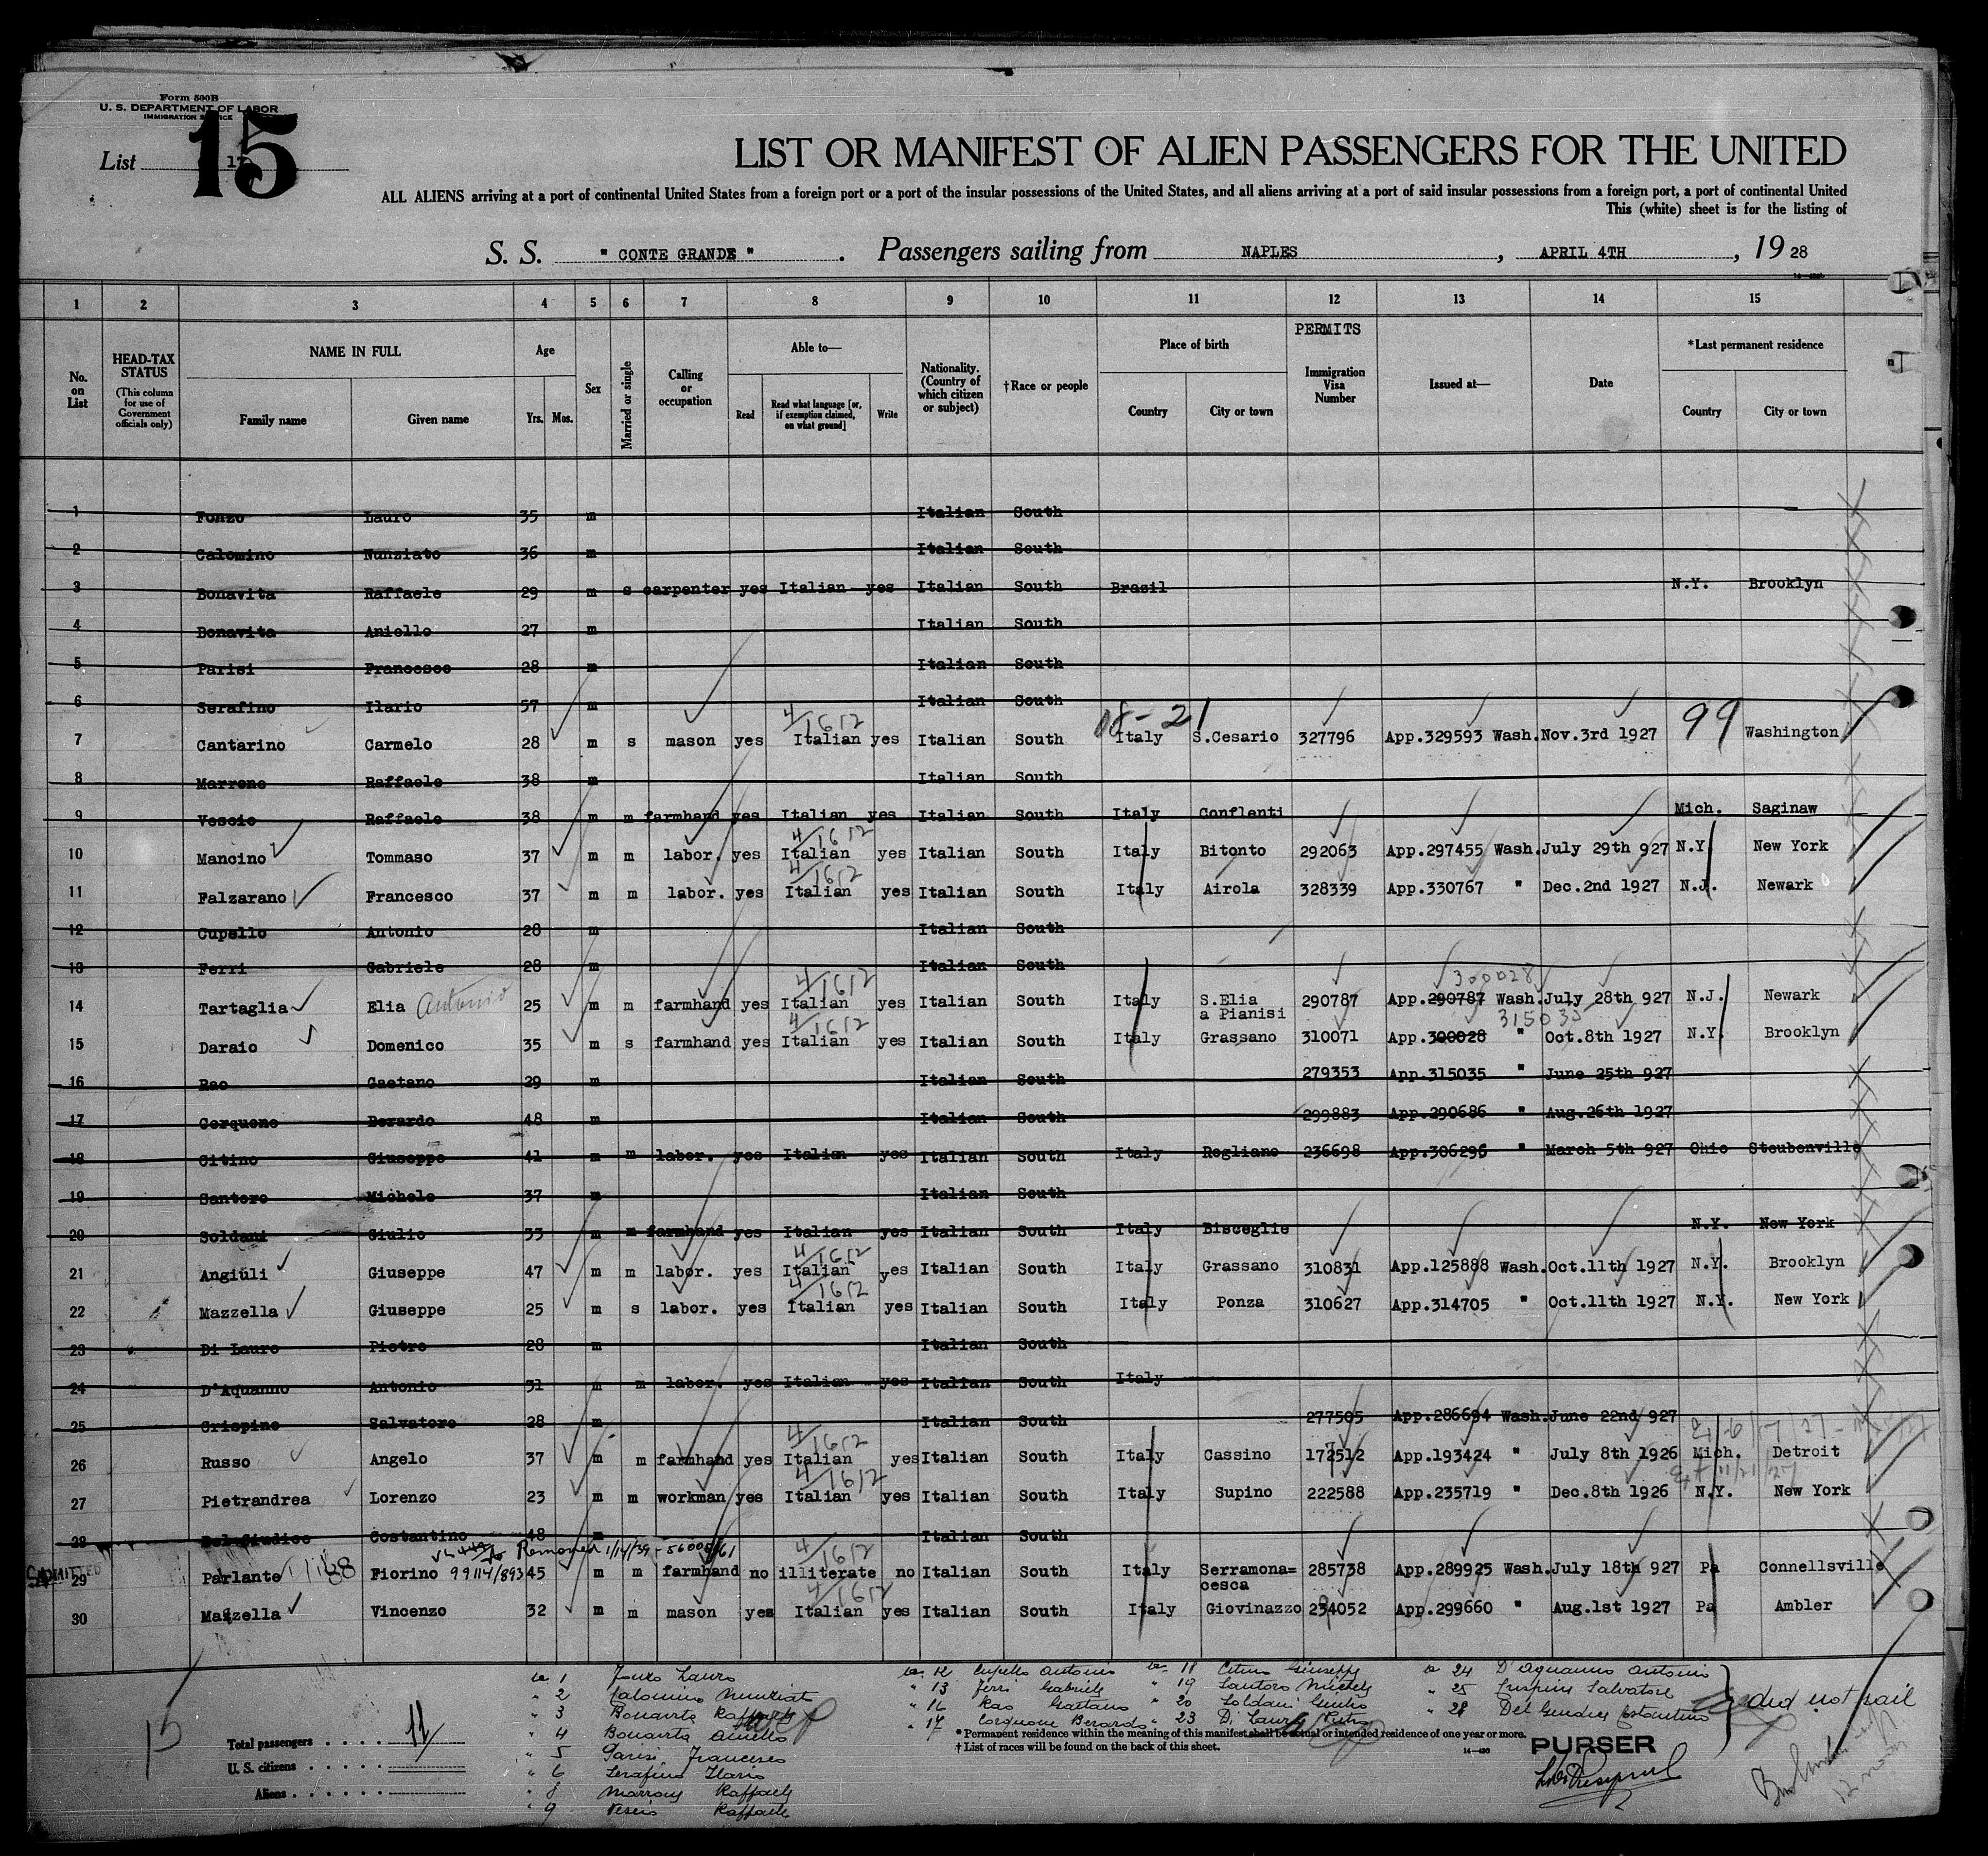 Form 500B
U. S. DEPARTMENT OF LABOR
IMMIGRATION SERVICE
15
List
LIST OR MANIFEST OF ALIEN PASSENGERS FOR THE UNITED
ALL ALIENS arriving at a port of continental United States from a foreign port or a port of the insular possessions of the United States, and all aliens arriving at a port of said insular possessions from a foreign port, a port of continental United
This (white) sheet is for the listing of
S. S. " CONTE GRANDE " . Passengers sailing from NAPLES , APRIL 4TH , 19 28
1 2 3 4 5 6 7 8 9 10 11 12 13 14 15
No. on List
HEAD-TAX STATUS
(This column for use of Government officials only)
NAME IN FULL
Family name Given name
Age
Yrs. Mos.
Sex
Married or single
Calling or occupation
Able to—
Read
Read what language [or, if exemption claimed, on what ground]
Write
Nationality. (Country of which citizen or subject)
†Race or people
Place of birth
Country City or town
PERMITS
Immigration Visa Number
Issued at—
Date
*Last permanent residence
Country City or town
1 Fonzo Lauro 35 m Italian South
2 Calomino Nunziato 36 m Italian South
3 Bonavita Raffaele 29 m s carpenter yes Italian yes Italian South Brazil N.Y. Brooklyn
4 Bonavita Aniello 27 m Italian South
5 Parisi Francesco 28 m Italian South
6 Serafino Ilario 57 m Italian South
4/1612 21
7 Cantarino Carmelo 28 m s mason yes Italian yes Italian South Italy S.Cesario 327796 App.329593 Wash. Nov.3rd 1927 99 Washington
8 Marrone Raffaele 38 m Italian South
9 Vescio Raffaele 38 m m farmhand yes Italian yes Italian South Italy Conflenti Mich. Saginaw
4/1612
10 Mancino Tommaso 37 m m labor. yes Italian yes Italian South Italy Bitonto 292063 App.297455 Wash. July 29th 927 N.Y. New York
4/1612
11 Falzarano Francesco 37 m m labor. yes Italian yes Italian South Italy Airola 328339 App.330767 " Dec.2nd 1927 N.J. Newark
12 Cupello Antonio 28 m Italian South
13 Ferri Gabriele 28 m Italian South
4/1612 300028
14 Tartaglia Elia Antonio 25 m m farmhand yes Italian yes Italian South Italy S.Elia a Pianisi 290787 App.290787 Wash. July 28th 927 N.J. Newark
4/1612 315035
15 Daraio Domenico 35 m s farmhand yes Italian yes Italian South Italy Grassano 310071 App.300028 " Oct.8th 1927 N.Y. Brooklyn
16 Rao Gaetano 29 m Italian South 279353 App.315035 " June 25th 927
17 Cerquone Berardo 48 m Italian South 299883 App.290686 " Aug.26th 1927
18 Citino Giuseppe 41 m m labor. yes Italian yes Italian South Italy Rogliano 236698 App.306296 " March 5th 927 Ohio Steubenville
19 Santoro Michele 37 m Italian South
20 Soldani Giulio 33 m m farmhand yes Italian yes Italian South Italy Bisceglie N.Y. New York
4/1612
21 Angiuli Giuseppe 47 m m labor. yes Italian yes Italian South Italy Grassano 310831 App.125888 Wash. Oct.11th 1927 N.Y. Brooklyn
4/1612
22 Mazzella Giuseppe 25 m s labor. yes Italian yes Italian South Italy Ponza 310627 App.314705 " Oct.11th 1927 N.Y. New York
23 Di Lauro Pietro 28 m Italian South
24 D'Aquanno Antonio 31 m m labor. yes Italian yes Italian South Italy
25 Crispino Salvatore 28 m Italian South 277505 App.286694 Wash. June 22nd 927
4/1612
26 Russo Angelo 37 m m farmhand yes Italian yes Italian South Italy Cassino 172512 App.193424 " July 8th 1926 Mich. Detroit
4/1612
27 Pietrandrea Lorenzo 23 m m workman yes Italian yes Italian South Italy Supino 222588 App.235719 " Dec.8th 1926 N.Y. New York
28 Del Giudice Costantino 48 m Italian South
Removed 1/14/39 4/1612
ADMITTED
29 Parlante Fiorino 99114/893 45 m m farmhand no illiterate no Italian South Italy Serramona= cesca 285738 App.289925 Wash. July 18th 927 Pa Connellsville
4/1612
30 Mazzella Vincenzo 32 m m mason yes Italian yes Italian South Italy Giovinazzo 234052 App.299660 " Aug.1st 1927 Pa Ambler
1 Fonzo Lauro
" 2 Calomino Nunziato
" 3 Bonavita Raffaele
" 4 Bonavita Aniello
" 5 Parisi Francesco
" 6 Serafino Ilario
" 8 Marrone Raffaele
" 9 Vescio Raffaele
12 Cupello Antonio
" 13 Ferri Gabriele
" 16 Rao Gaetano
" 17 Cerquone Berardo
18 Citino Giuseppe
" 19 Santoro Michele
" 20 Soldani Giulio
" 23 Di Lauro Pietro
24 D'Aquanno Antonio
" 25 Crispino Salvatore
" 28 Del Giudice Costantino
did not sail
Total passengers 11
U. S. citizens
Aliens
* Permanent residence within the meaning of this manifest shall be actual or intended residence of one year or more.
† List of races will be found on the back of this sheet.
PURSER